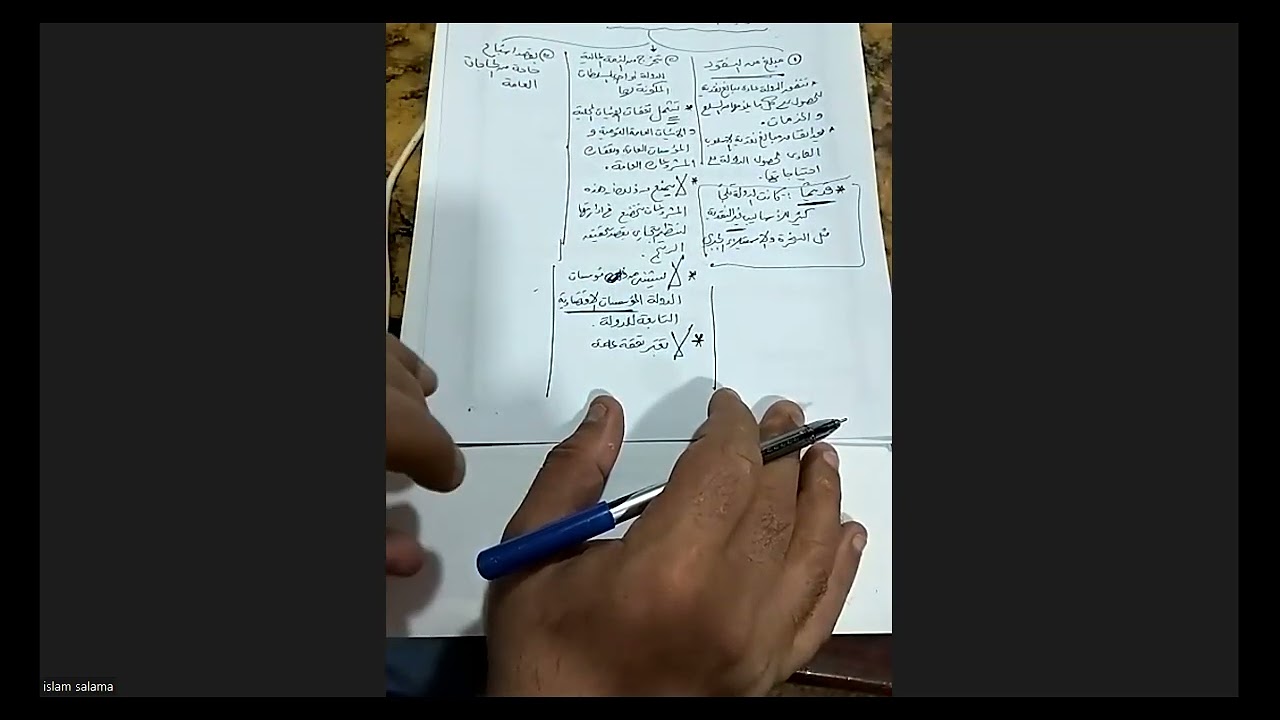 ① مبلغ من النقود
* تنفق الدولة عادة مبالغ نقدية
للحصول على كل ما يلزمها من السلع
والخدمات.
* الأسلوب
العادي لحصول الدولة على
احتياجاتها.
* قديماً : كانت الدولة تلجأ
غير النقدية
مثل السخرة والاستيلاء الجبري
② تخرج من الذمة المالية
الدولة أو أحد السلطات
المكونة لها
* تشمل نفقات الهيئات المحلية
والهيئات العامة القومية و
المؤسسات العامة ونفقات
المشروعات العامة.
* لا يمنع من ذلك أن هذه
المشروعات تخضع في إدارتها
لتنظيم تجاري بقصد تحقيق
الربح.
* لا يستثنى من ذلك مؤسسات
الدولة المؤسسات الاقتصادية
التابعة للدولة.
* لا يعتبر نفقة عامة
③ بقصد إشباع
حاجة من الحاجات
العامة
islam salama